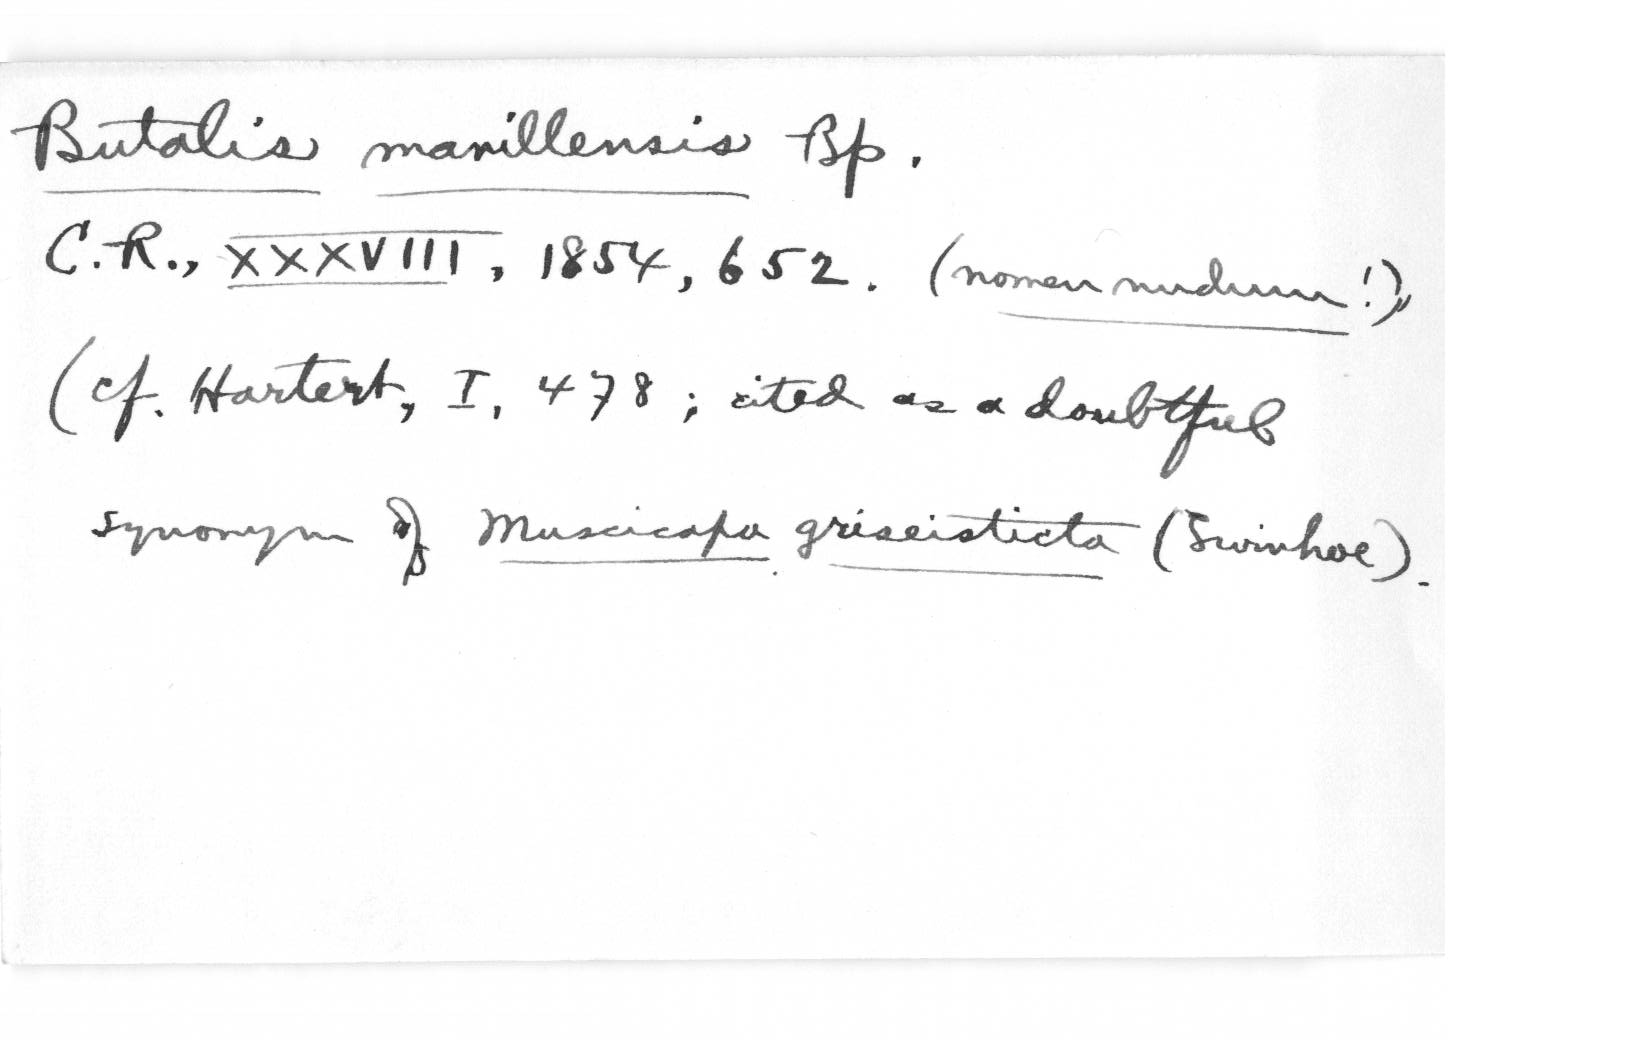 Butalis manillensis Bp.
C.R., XXXVIII, 1854, 652. (nomen nudum!),
(cf. Hartert, I, 478; cited as a doubtful
synonym of Muscicapa griseisticta (Swinhoe).